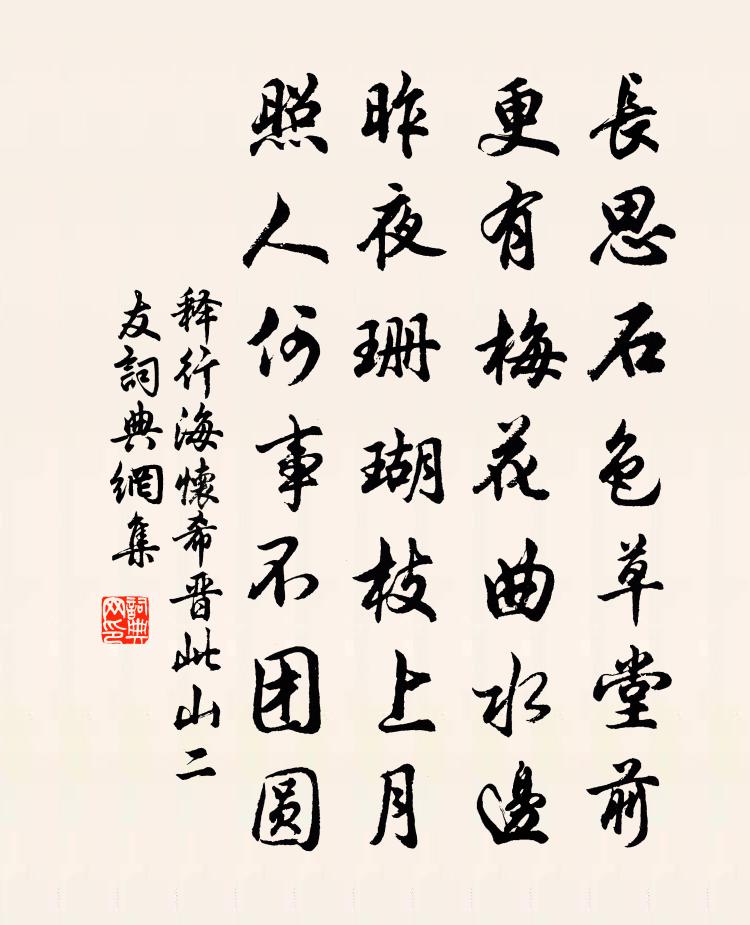 長思石色草堂前
更有梅花曲水邊
昨夜珊瑚枝上月
照人何事不团圆
释行海懷希晋此山二
友詞典網集
詞典网印